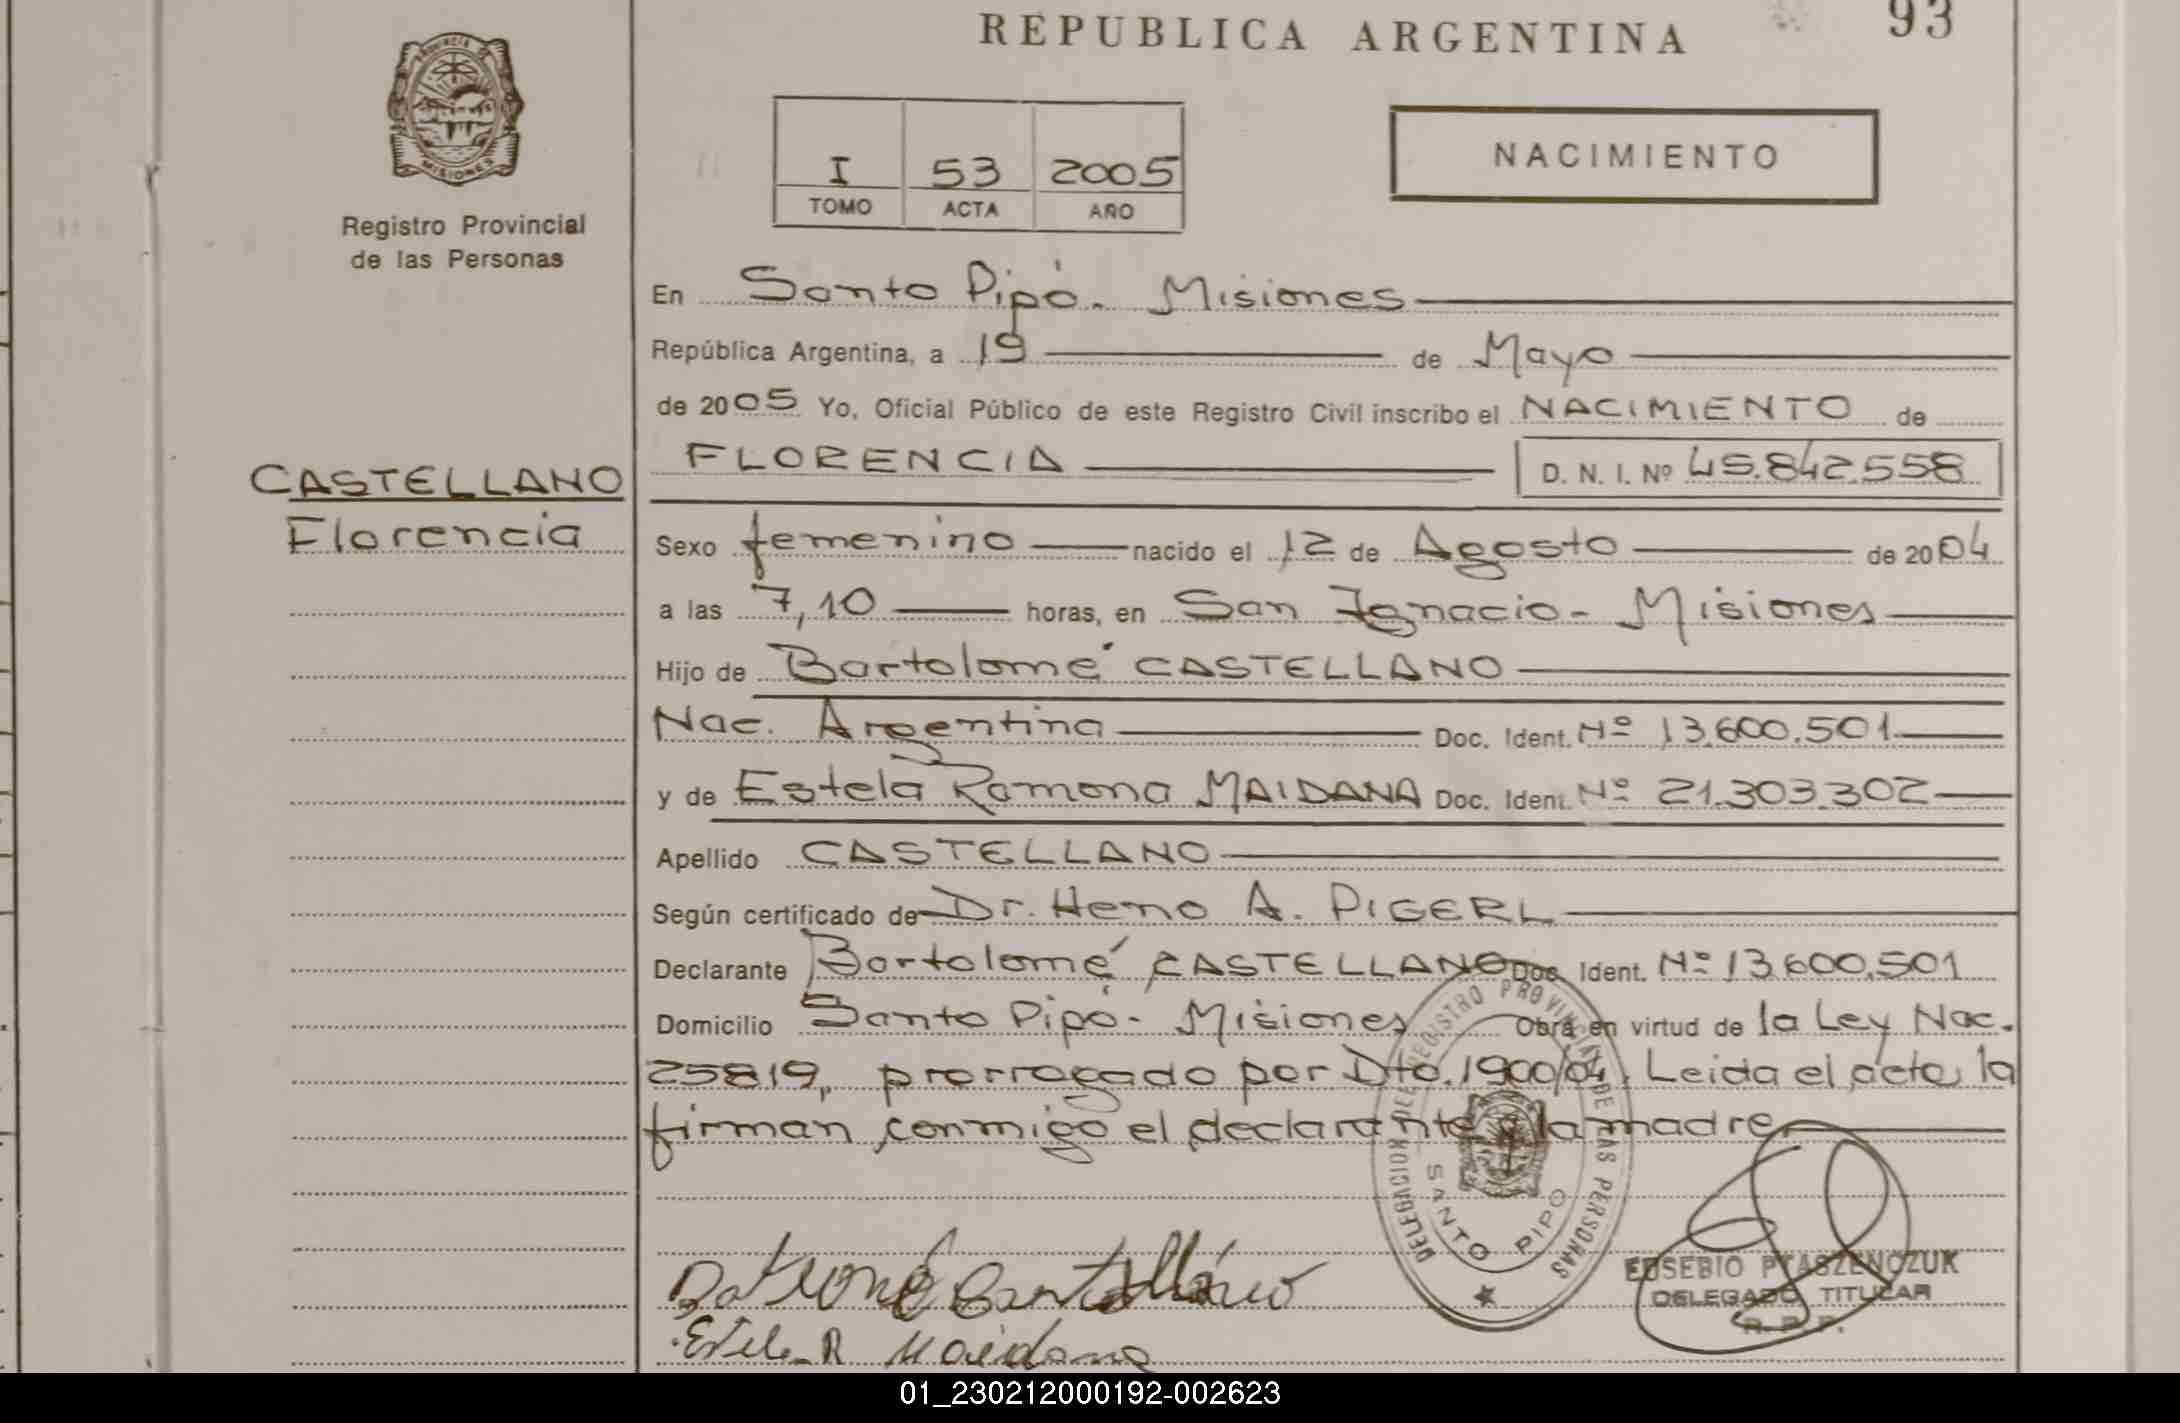 REPUBLICA ARGENTINA
93
PROVINCIA DE MISIONES
Registro Provincial
de las Personas
I 53 2005
TOMO ACTA AÑO
NACIMIENTO
CASTELLANO
Florencia
En Santo Pipó - Misiones
República Argentina, a 19 de Mayo
de 2005 Yo, Oficial Público de este Registro Civil inscribo el NACIMIENTO de
FLORENCIA D. N. I. Nº 45.842.558
Sexo femenino nacido el 12 de Agosto de 2004
a las 7,10 horas, en San Ignacio - Misiones
Hijo de Bartolomé CASTELLANO
Nac. Argentina Doc. Ident. Nº 13.600.501
y de Estela Ramona MAIDANA Doc. Ident. Nº 21.303.302
Apellido CASTELLANO
Según certificado de Dr. A. PIGERL
Declarante Bartolomé CASTELLANO Doc. Ident. Nº 13.600.501
Domicilio Santo Pipó - Misiones Obra en virtud de la Ley Nac.
25819, prorrogado por Dto. 1900/04. Leida el acta, la
firman conmigo el declarante y la madre
DELEGACION DEL REGISTRO PROVINCIAL DE LAS PERSONAS
SANTO PIPO
Castellano
Estela R Maidana
EUSEBIO PTASZENCZUK
DELEGADO TITULAR
R. P. P.
01_230212000192-002623